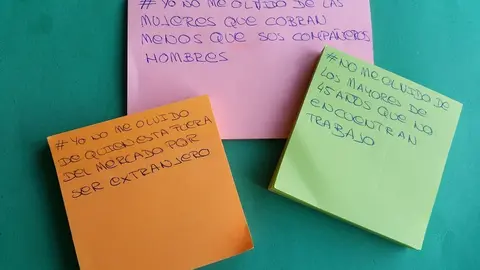 # YO NO ME OLVIDO DE LAS
MUJERES QUE COBRAN
MENOS QUE SUS COMPAÑEROS
HOMBRES
# YO NO ME OLVIDO
DE QUIEN ESTA FUERA
DEL MERCADO POR
SER EXTRANJERO
# NO ME OLVIDO DE
LOS MAYORES DE
45 AÑOS QUE NO
ENCUENTRAN
TRABAJO